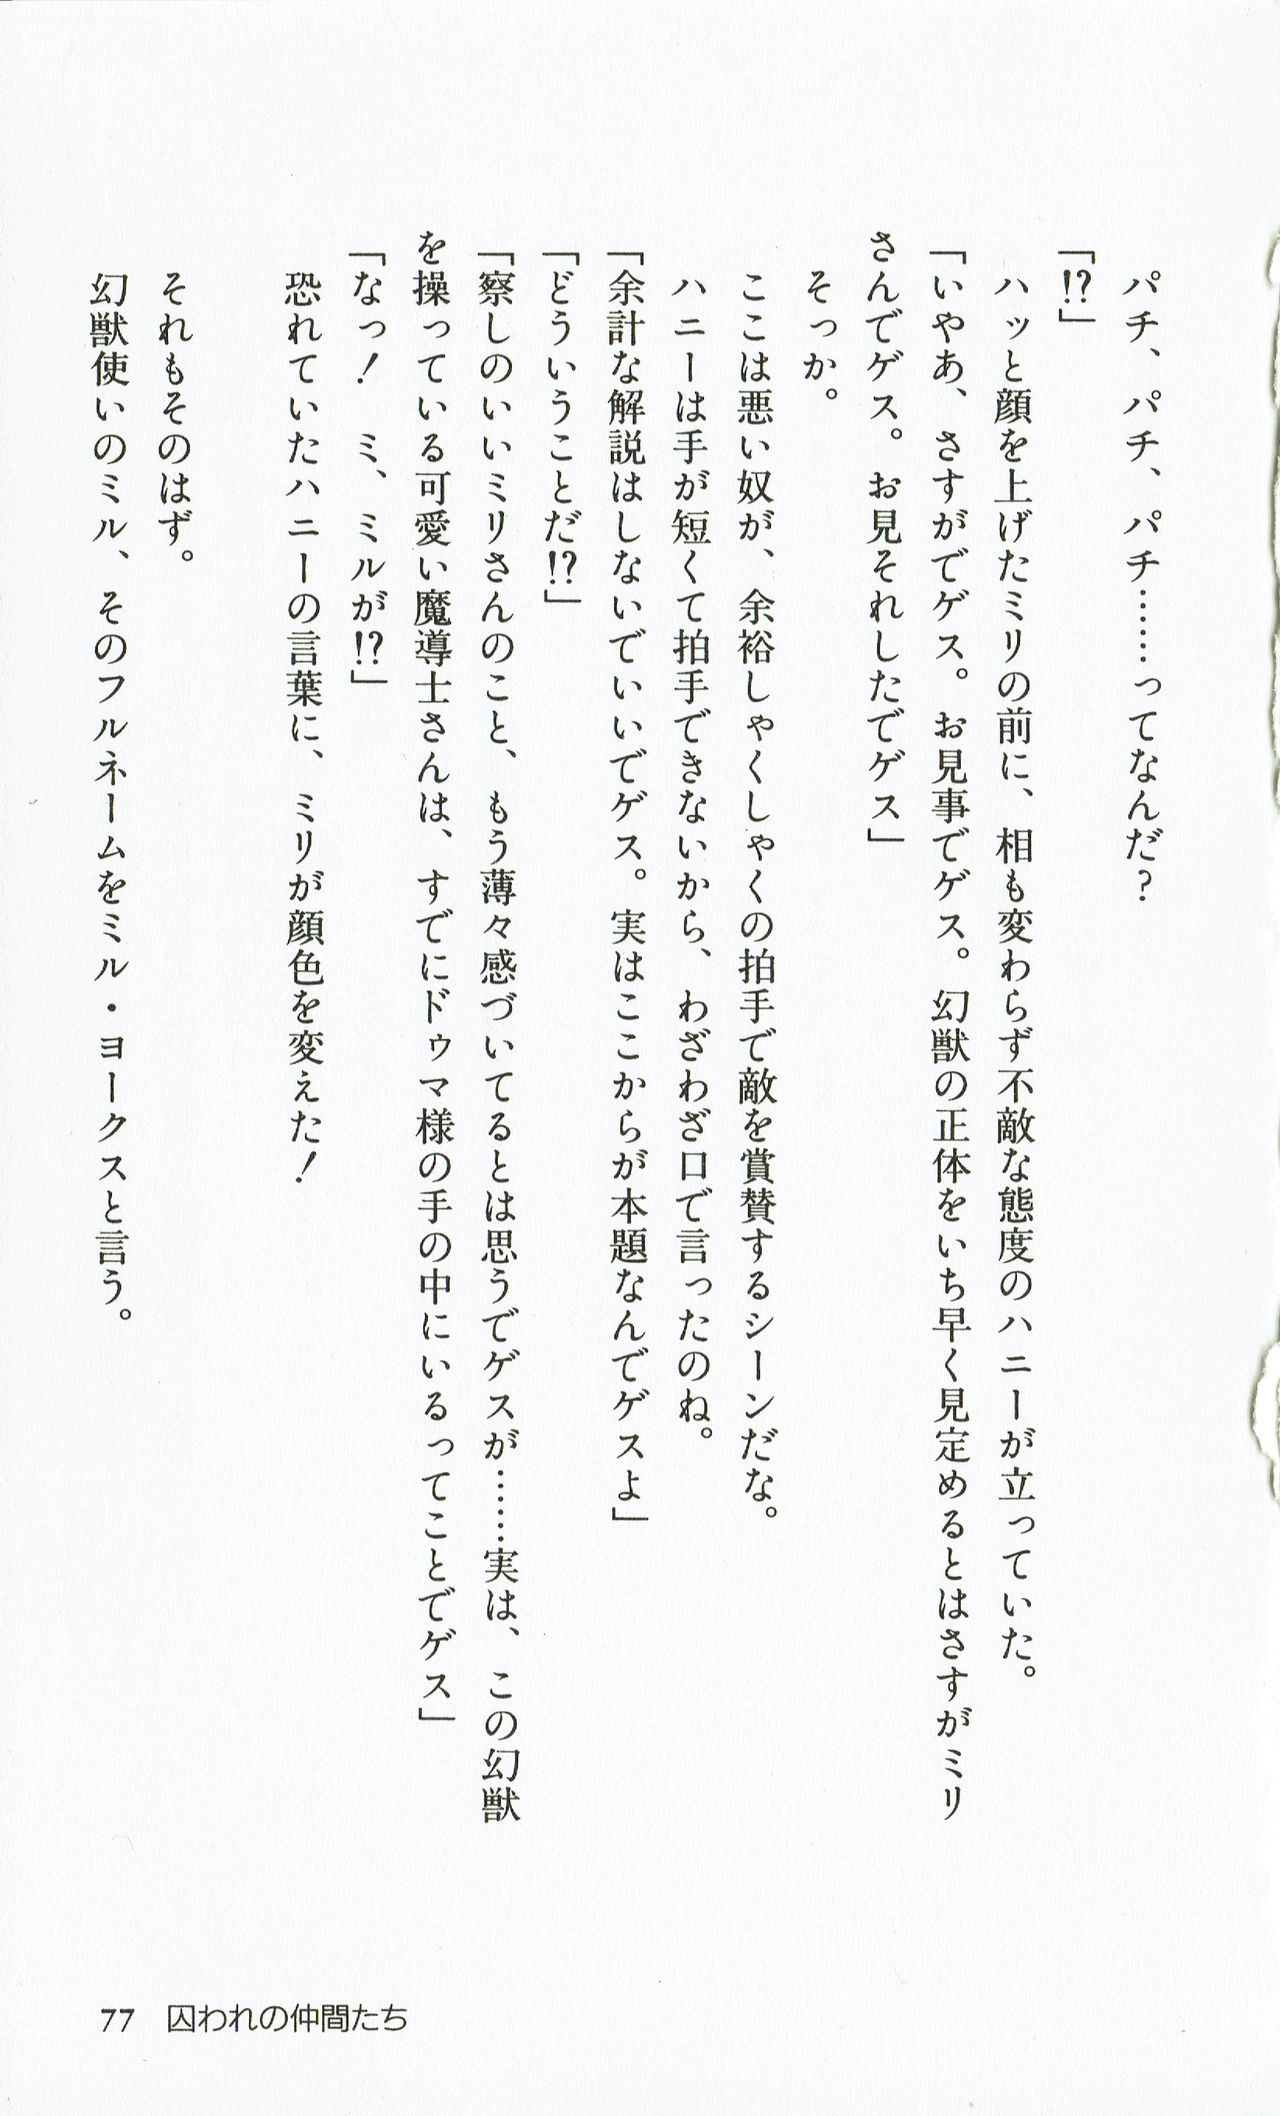 パチ、パチ、パチ……ってなんだ？
「!?」
ハッと顔を上げたミリの前に、相も変わらず不敵な態度のハニーが立っていた。
「いやあ、さすがでゲス。お見事でゲス。幻獣の正体をいち早く見定めるとはさすがミリ
さんでゲス。お見それしたでゲス」
そっか。
ここは悪い奴が、余裕しゃくしゃくの拍手で敵を賞賛するシーンだな。
ハニーは手が短くて拍手できないから、わざわざ口で言ったのね。
「余計な解説はしないでいいでゲス。実はここからが本題なんでゲスよ」
「どういうことだ!?」
「察しのいいミリさんのこと、もう薄々感づいてるとは思うでゲスが……実は、この幻獣
を操っている可愛い魔導士さんは、すでにドゥマ様の手の中にいるってことでゲス」
「なっ！　ミ、ミルが!?」
恐れていたハニーの言葉に、ミリが顔色を変えた！
それもそのはず。
幻獣使いのミル、そのフルネームをミル・ヨークスと言う。
77　囚われの仲間たち